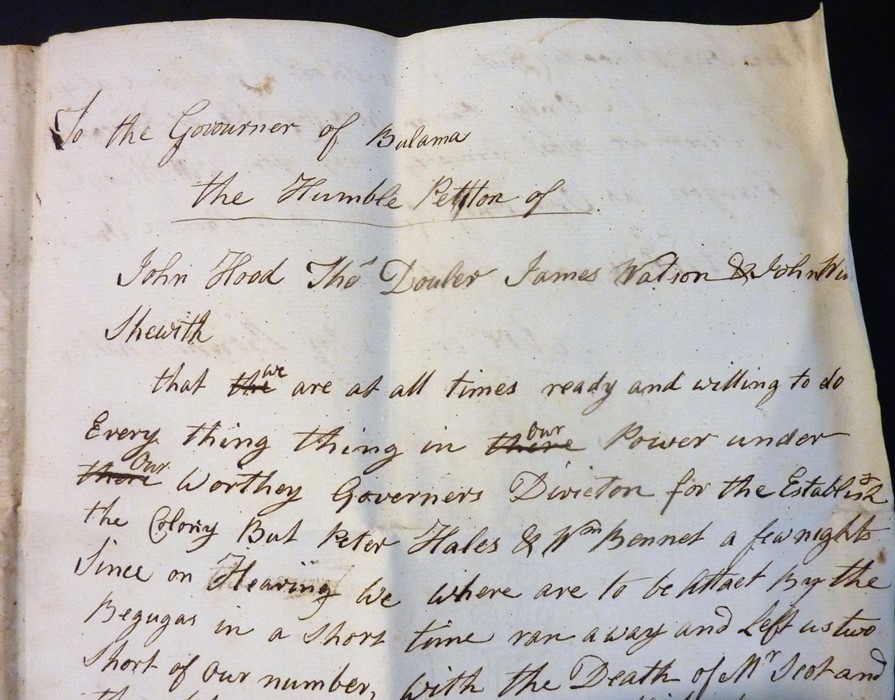 To the Govourner of Bulama
the Humble Petition of
John Hood Thos Douler James Watson & John
Shewith
that the we are at all times ready and willing to do
Every thing thing in there our Power under
there Our Worthey Governers Direction for the Establish
the Colony But Peter Hales & Wm Bennet a few nights
Since on Hearing We where are to be Attact By the
Begugas in a Short time ran away and Left us two
Short of our number, with the Death of Mr Scot and